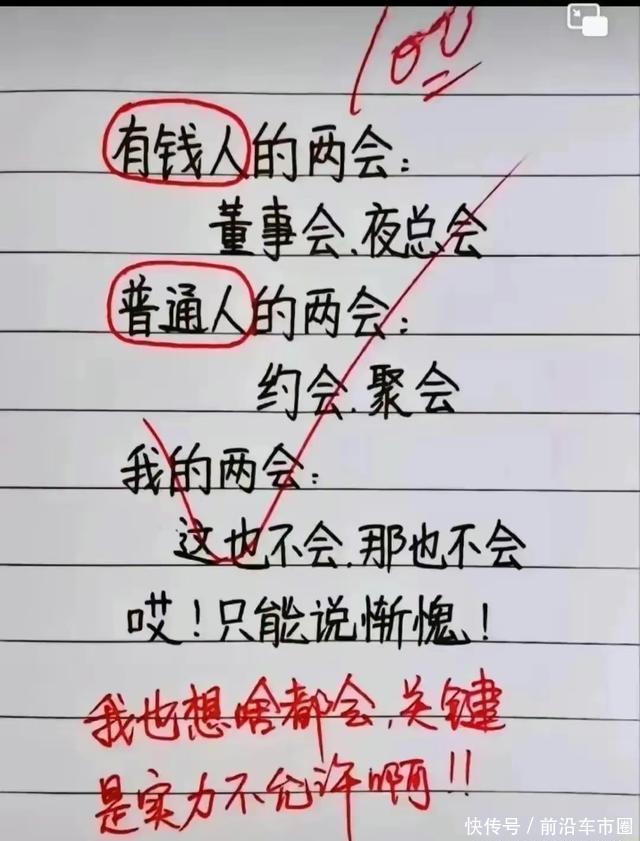 100
有钱人的两会：
董事会、夜总会
普通人的两会：
约会、聚会
我的两会：
这也不会、那也不会
哎！只能说惭愧！
我也想啥都会、关键
是实力不允许啊！！
快传号／前沿车市圈